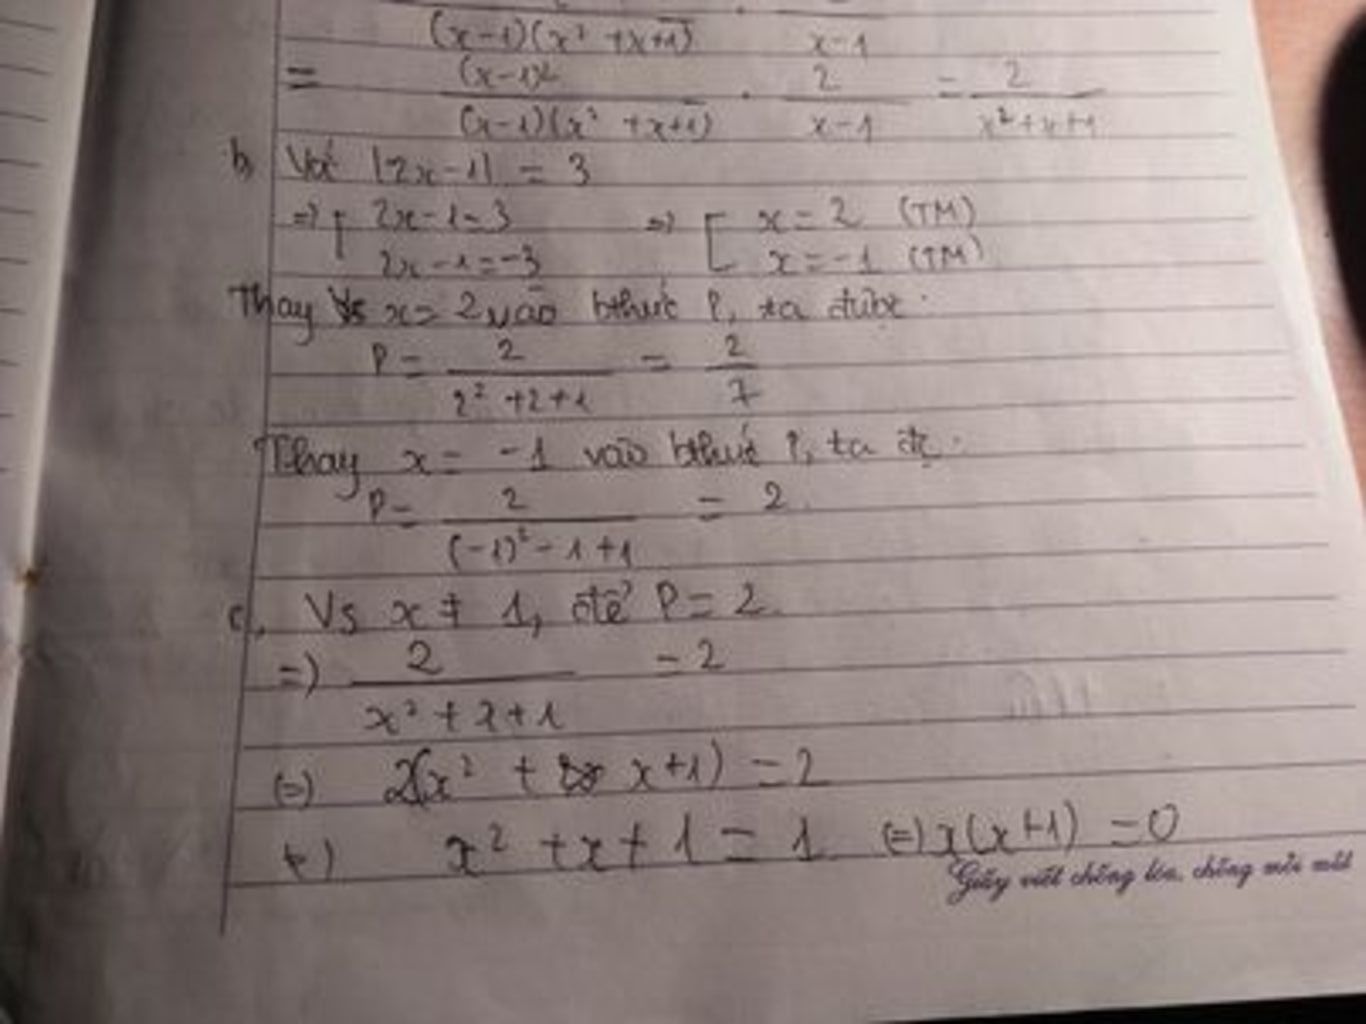 (x-1)(x² +x+1) x-1
= (x-1)² / (x-1)(x² +x+1) . 2 / x-1 = 2 / x²+x+1
b, Với |2x-1| = 3
=> [ 2x-1=3 => [ x=2 (TM)
2x-1=-3 x=-1 (TM)
Thay x=2 vào bthức P, ta được:
P= 2 / 2² +2+1 = 2 / 7
Thay x= -1 vào bthức P, ta đc:
P= 2 / (-1)² -1+1 = 2.
c, Vs x ≠ 1, để P=2
=> 2 / x²+x+1 =2
(=) 2(x² + x+1) =2
(=) x² +x+1 = 1 (=) x(x+1) =0
Giấy viết chống lóa, chống mỏi mắt